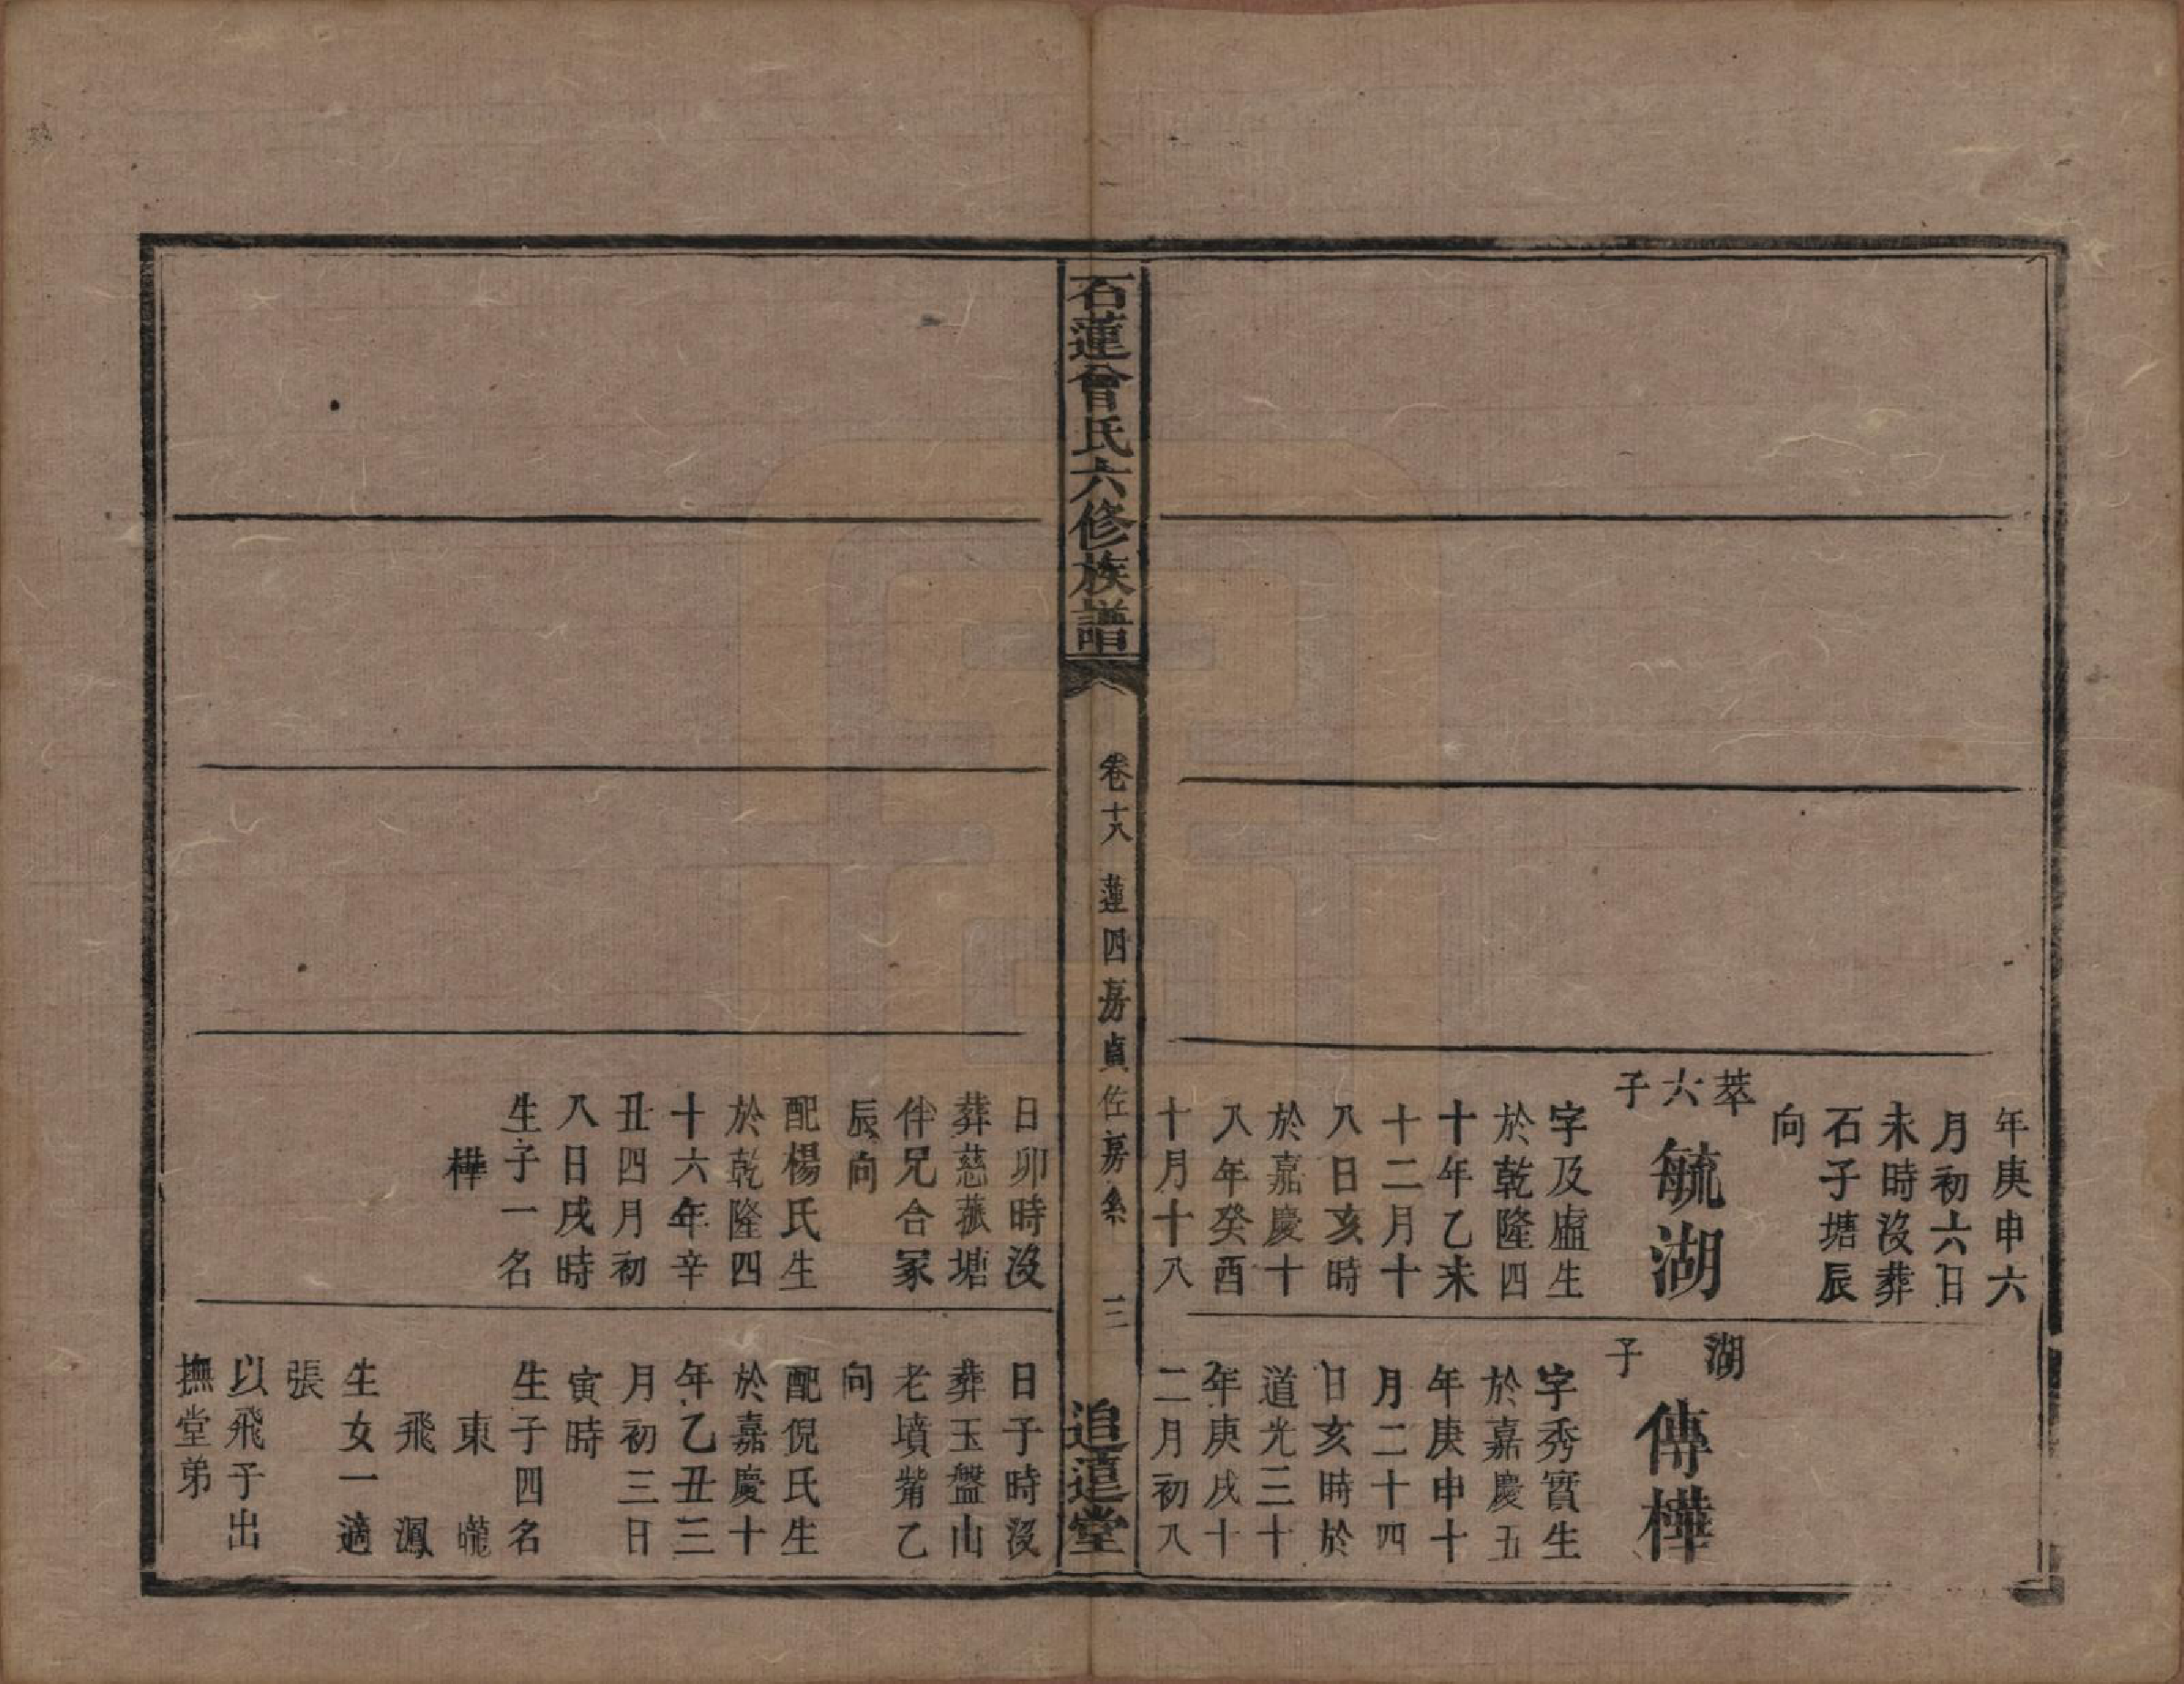 年庚申六
月初六日
未時沒葬
石子塘辰
向
萃六子
毓湖
字及廬生
於乾隆四
十年乙未
十二月十
八日亥時
於嘉慶十
八年癸酉
十月十八
湖子
傳樺
字秀實生
於嘉慶五
年庚申十
月二十四
日亥時於
道光三十
年庚戌十
二月初八
石蓮曾氏六修族譜
卷十八
蓮四房貞佐房系
三
追遠堂
日卯時沒
葬慈菰塘
伴兄合冢
辰向
配楊氏生
於乾隆四
十六年辛
丑四月初
八日戌時
生子一名
樺
日子時沒
葬玉盤山
老墳觜乙
向
配倪氏生
於嘉慶十
年乙丑三
月初三日
寅時
生子四名
東 曨
飛 鳳
生女一適
張
以飛予出
撫堂弟